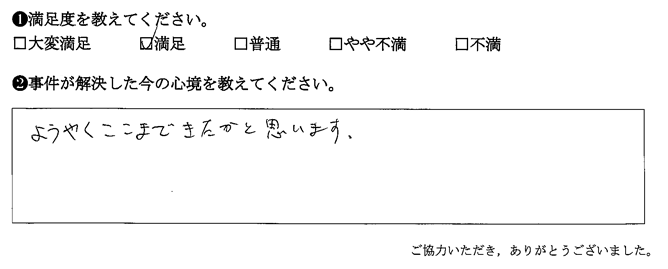 ❶満足度を教えてください。
□大変満足 ☑満足 □普通 □やや不満 □不満
❷事件が解決した今の心境を教えてください。
ようやくここまできたかと思います。
ご協力いただき，ありがとうございました。